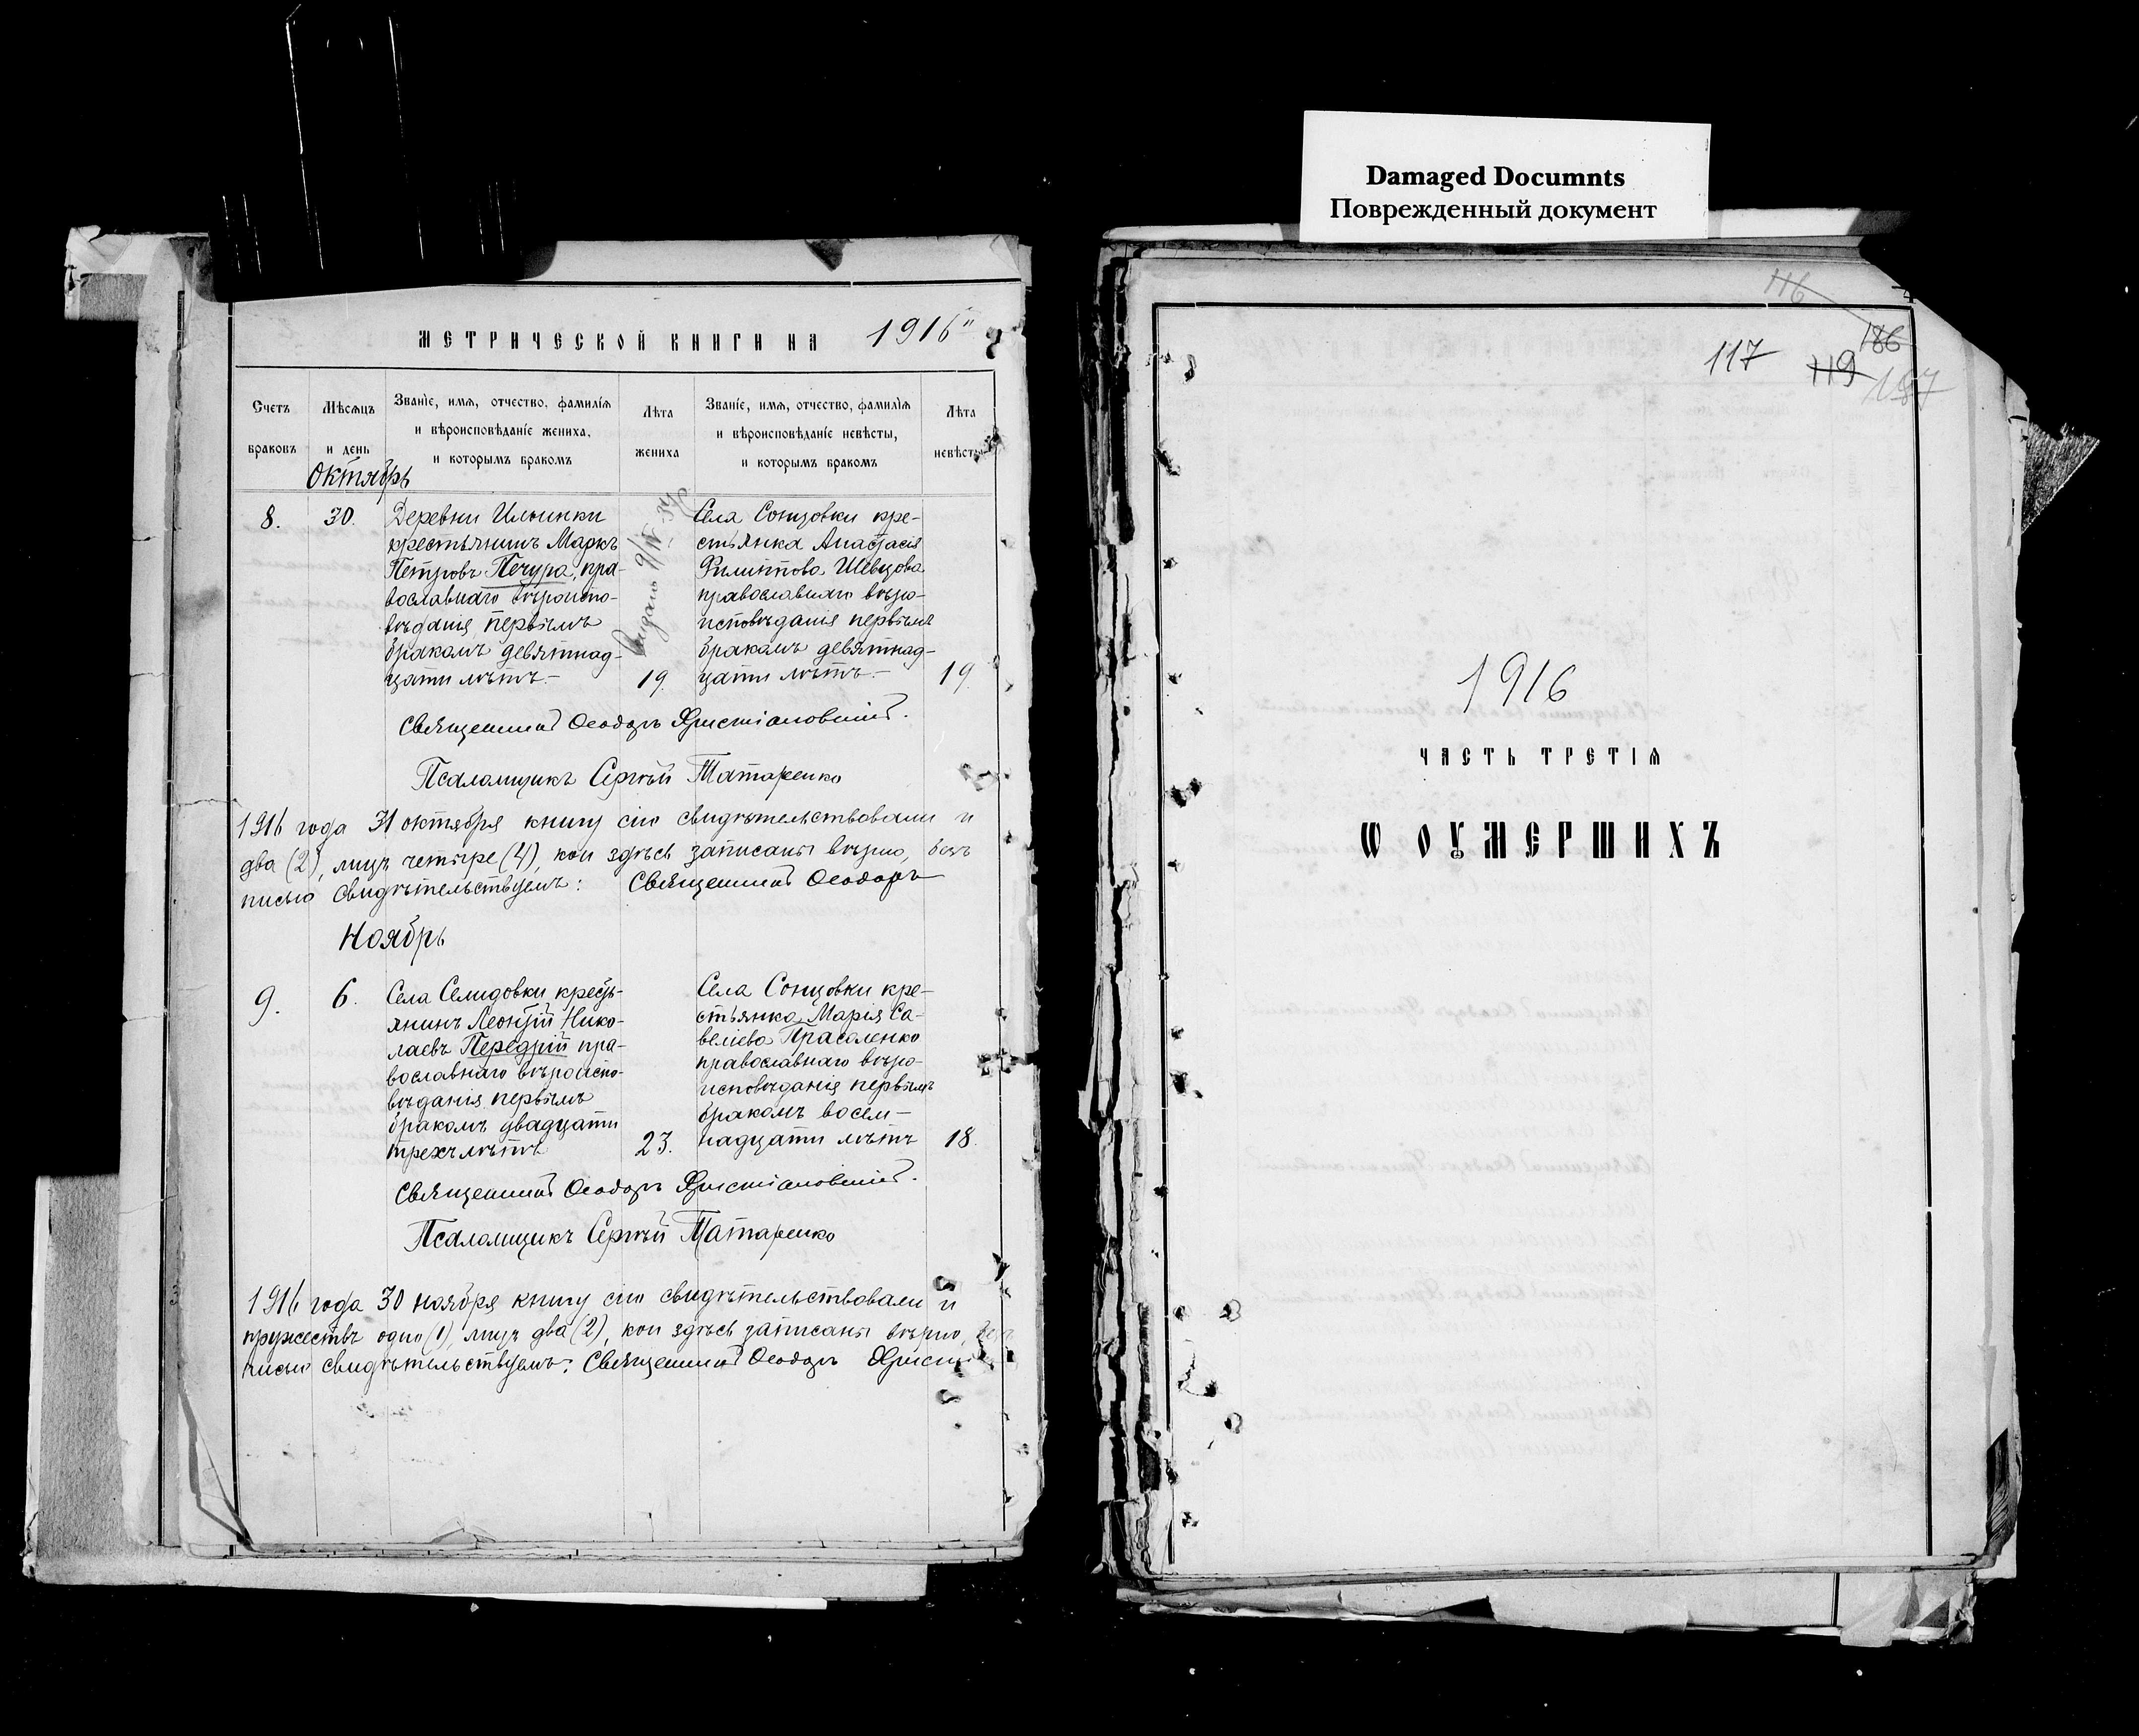 Damaged Documnts
Поврежденный документ
МЕТРИЧЕСКОЙ КНИГИ НА 1916
Счетъ браковъ
Мѣсѧцъ и день
Званїе, имѧ, отчество, фамилїѧ
и вѣроисповѣданїе жениха,
и которымъ бракомъ
Лѣта жениха
Званїе, имѧ, отчество, фамилїѧ
и вѣроисповѣданїе невѣсты,
и которымъ бракомъ
Лѣта невѣсты
Октябрь
8.
30.
Деревни Ильинки
крестьянинъ Маркъ
Петровъ Печура, пра-
вославнаго вѣроиспо-
вѣданія, первымъ
бракомъ девятнад-
цати лѣтъ.-
19.
Села Сонцовки кре-
стьянка Анастасія
Филиппова Шевцова
православнаго вѣро-
исповѣданія первымъ
бракомъ девятнад-
цати лѣтъ.-
19.
Священникъ Ѳеодоръ Христіановскій.
Псаломщикъ Сергѣй Татаренко
1916 года 31 октября книгу сію свидѣтельствовали и
два (2), лицъ четыре (4), кои здѣсь записаны вѣрно, безъ
писью свидѣтельствуемъ: Священникъ Ѳеодоръ
Ноябрь
9.
6.
Села Селидовки кресть-
янинъ Леонтій Нико-
лаевъ Передрій пра-
вославнаго вѣроиспо-
вѣданія, первымъ
бракомъ двадцати
трехъ лѣтъ
23.
Села Сонцовки кре-
стьянка Марія Са-
веліева Прасоленко
православнаго вѣро-
исповѣданія первымъ
бракомъ восем-
надцати лѣтъ
18.
Священникъ Ѳеодоръ Христіановскій.
Псаломщикъ Сергѣй Татаренко
1916 года 30 ноября книгу сію свидѣтельствовали и
пружествъ одно (1), лицъ два (2), кои здѣсь записаны вѣрно, безъ
писью свидѣтельствуемъ: Священникъ Ѳеодоръ
116
186
117
119
187
1916
ЧАСТЬ ТРЕТІѦ
Ѡ ОУМЕРШИХЪ